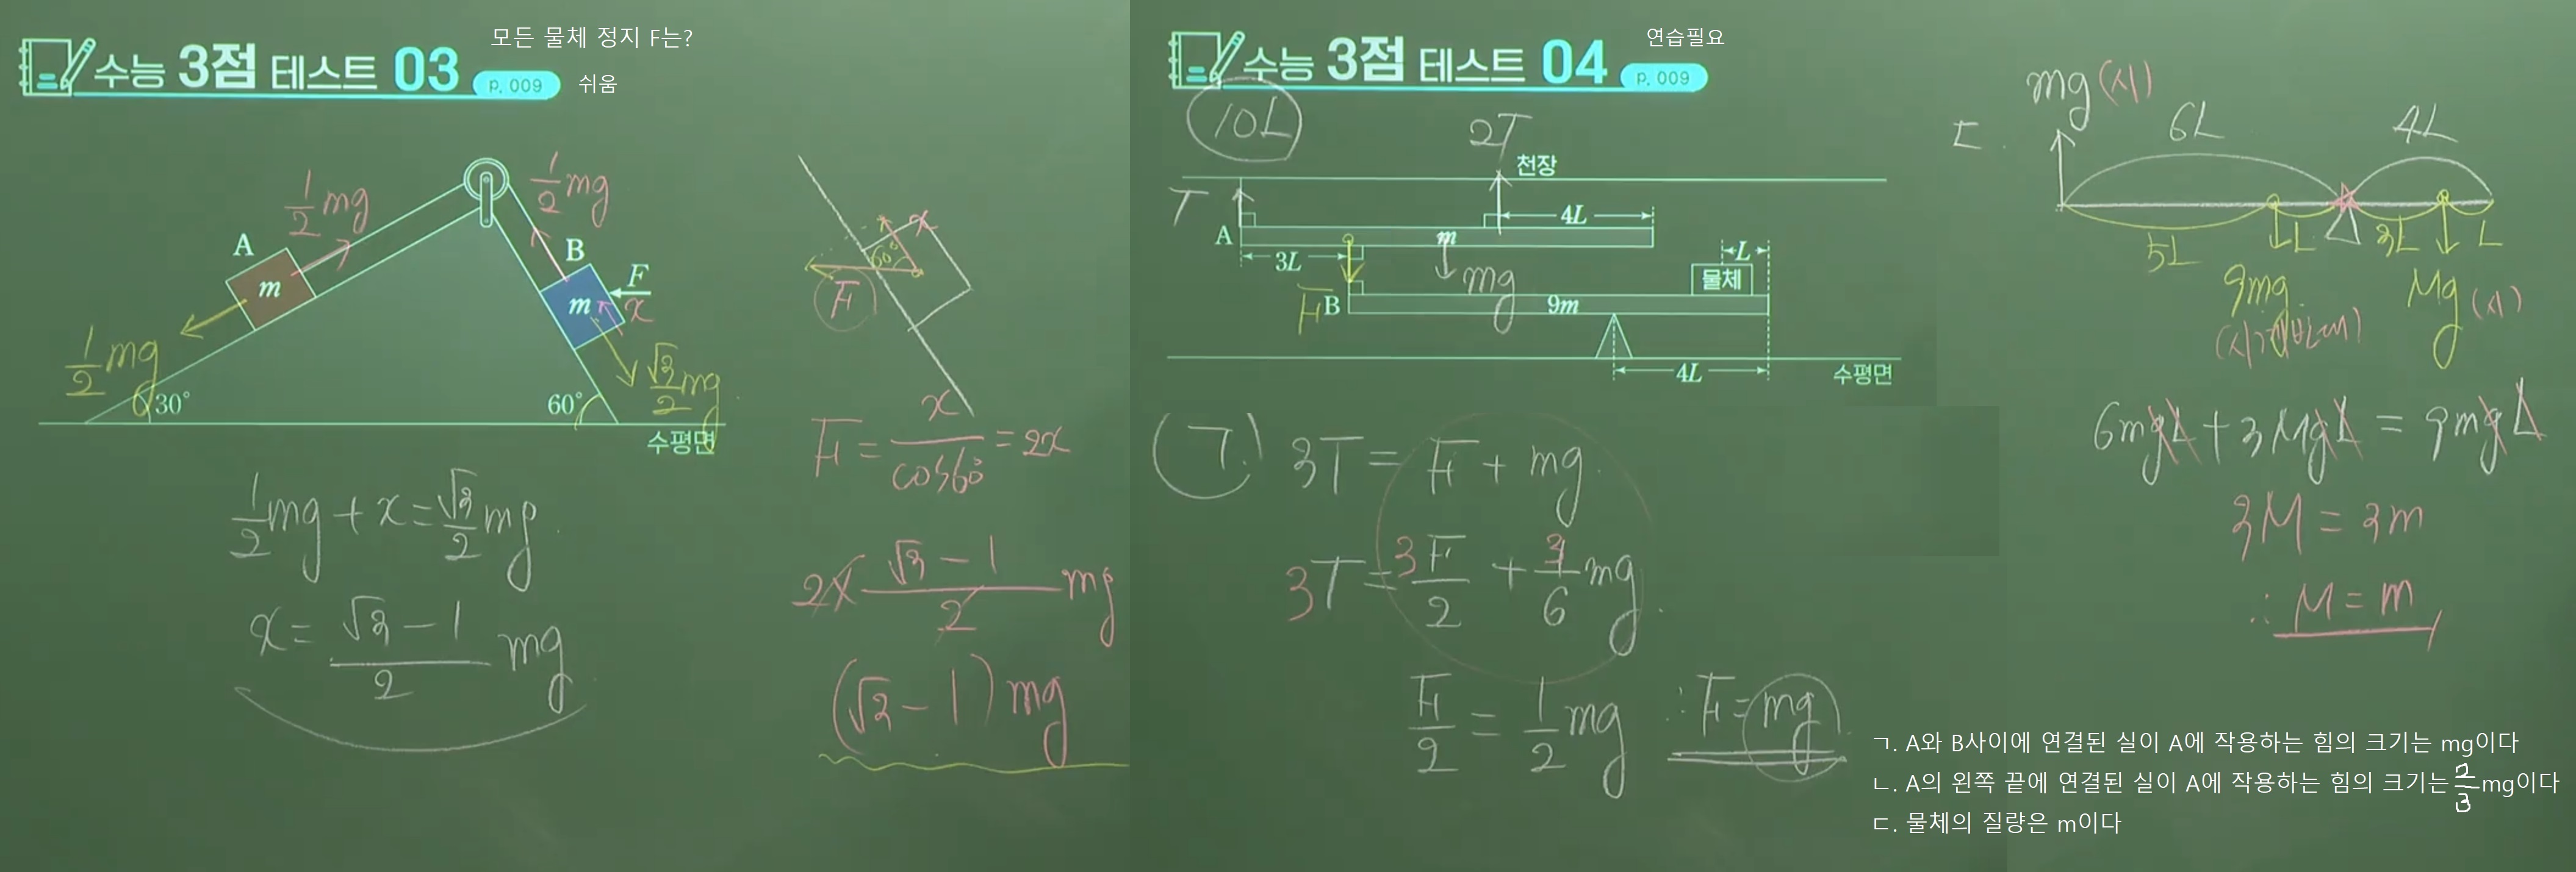 모든 물체 정지 F는?
수능 3점 테스트 03 p. 009
쉬움
1/2 mg
1/2 mg
A
B
F
m
m
x
1/2 mg
√3/2 mg
30°
60°
수평면
1/2 mg + x = √3/2 mg.
x = (√3 - 1)/2 mg
x
60°
F
F = x/cos60° = 2x
2× (√3 - 1)/2 mg
(√3 - 1) mg
연습필요
수능 3점 테스트 04 p. 009
10L
2T
천장
T
4L
A
m
3L
mg
L
물체
F
B
9m
4L
수평면
ㄱ. 3T = F + mg.
3T = 3 F/2 + 3/6 mg.
F/2 = 1/2 mg ∴ F = mg
ㄷ.
mg (시)
6L 4L
5L L 3L L
9mg (시계반대)
Mg (시)
6mgL + 3MgL = 9mgL
3M = 3m
∴ M = m
ㄱ. A와 B사이에 연결된 실이 A에 작용하는 힘의 크기는 mg이다
ㄴ. A의 왼쪽 끝에 연결된 실이 A에 작용하는 힘의 크기는 2/3 mg이다
ㄷ. 물체의 질량은 m이다